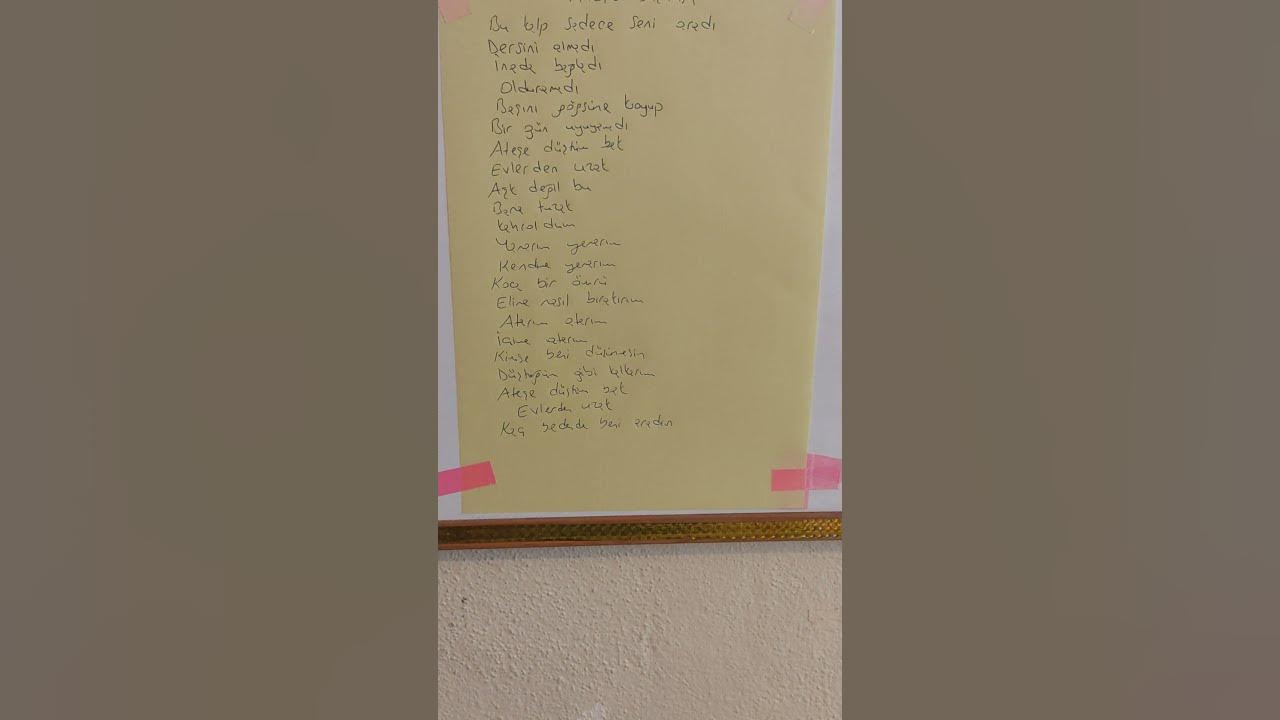 Bu kalp sadece seni aradı
Dersini almadı
İnada bağladı
Olduramadı
Başını göğsüne koyup
Bir gün uyuyamadı
Ateşe düştüm bak
Evlerden uzak
Aşk değil bu
Bana tuzak
kahroldum
Yanarım yanarım
Kendime yanarım
Koca bir ömrü
Eline nasıl bıraktırım
Atarım atarım
İçime atarım
Kimse beni düşünmesin
Düştüğüm gibi kalkarım
Ateşe düştüm bak
Evlerden uzak
Kaç bedende beni aradın